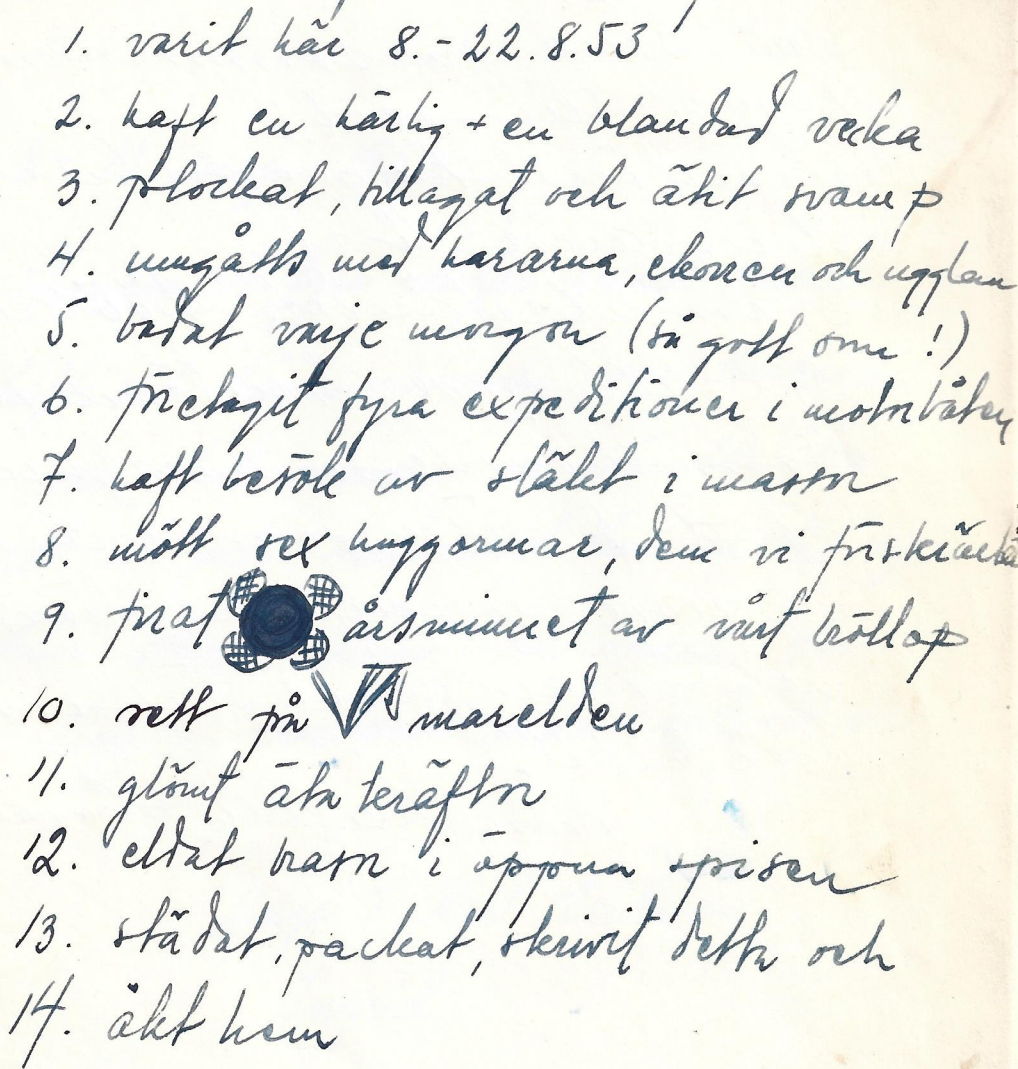 1. varit här 8.-22.8.53
2. haft en härlig + en blandad vecka
3. plockat, tillagat och ätit svamp
4. umgåtts med hararna, ekorren och ugglan
5. badat varje morgon (så gott som!)
6. företagit fyra expeditioner i motorbåten
7. haft besök av släkt i massor
8. mött sex huggormar, dem vi
9. firat årsminnet av vårt bröllop
10. sett på marelden
11. glömt äta kräftor
12. eldat brasor i öppna spisen
13. städat, packat, skrivit detta och
14. åkt hem